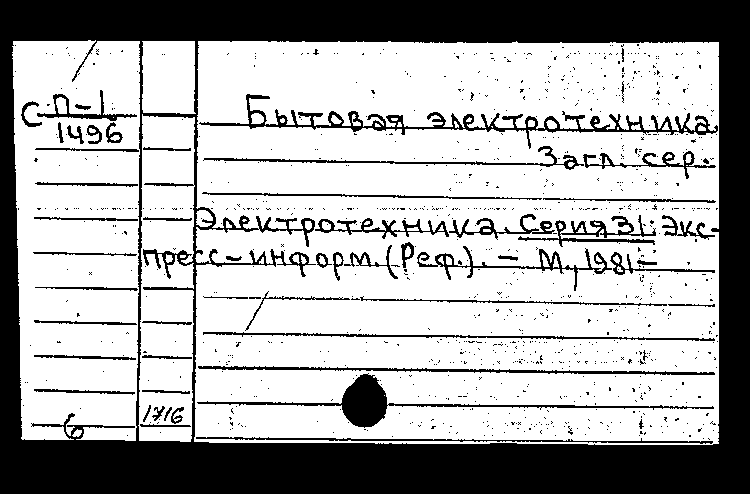 С П-1
1496
Бытовая электротехника.
Загл. сер.
Электротехника. Серия 31: Экс-
пресс-информ. (Реф.). - М., 1981-
6
1716